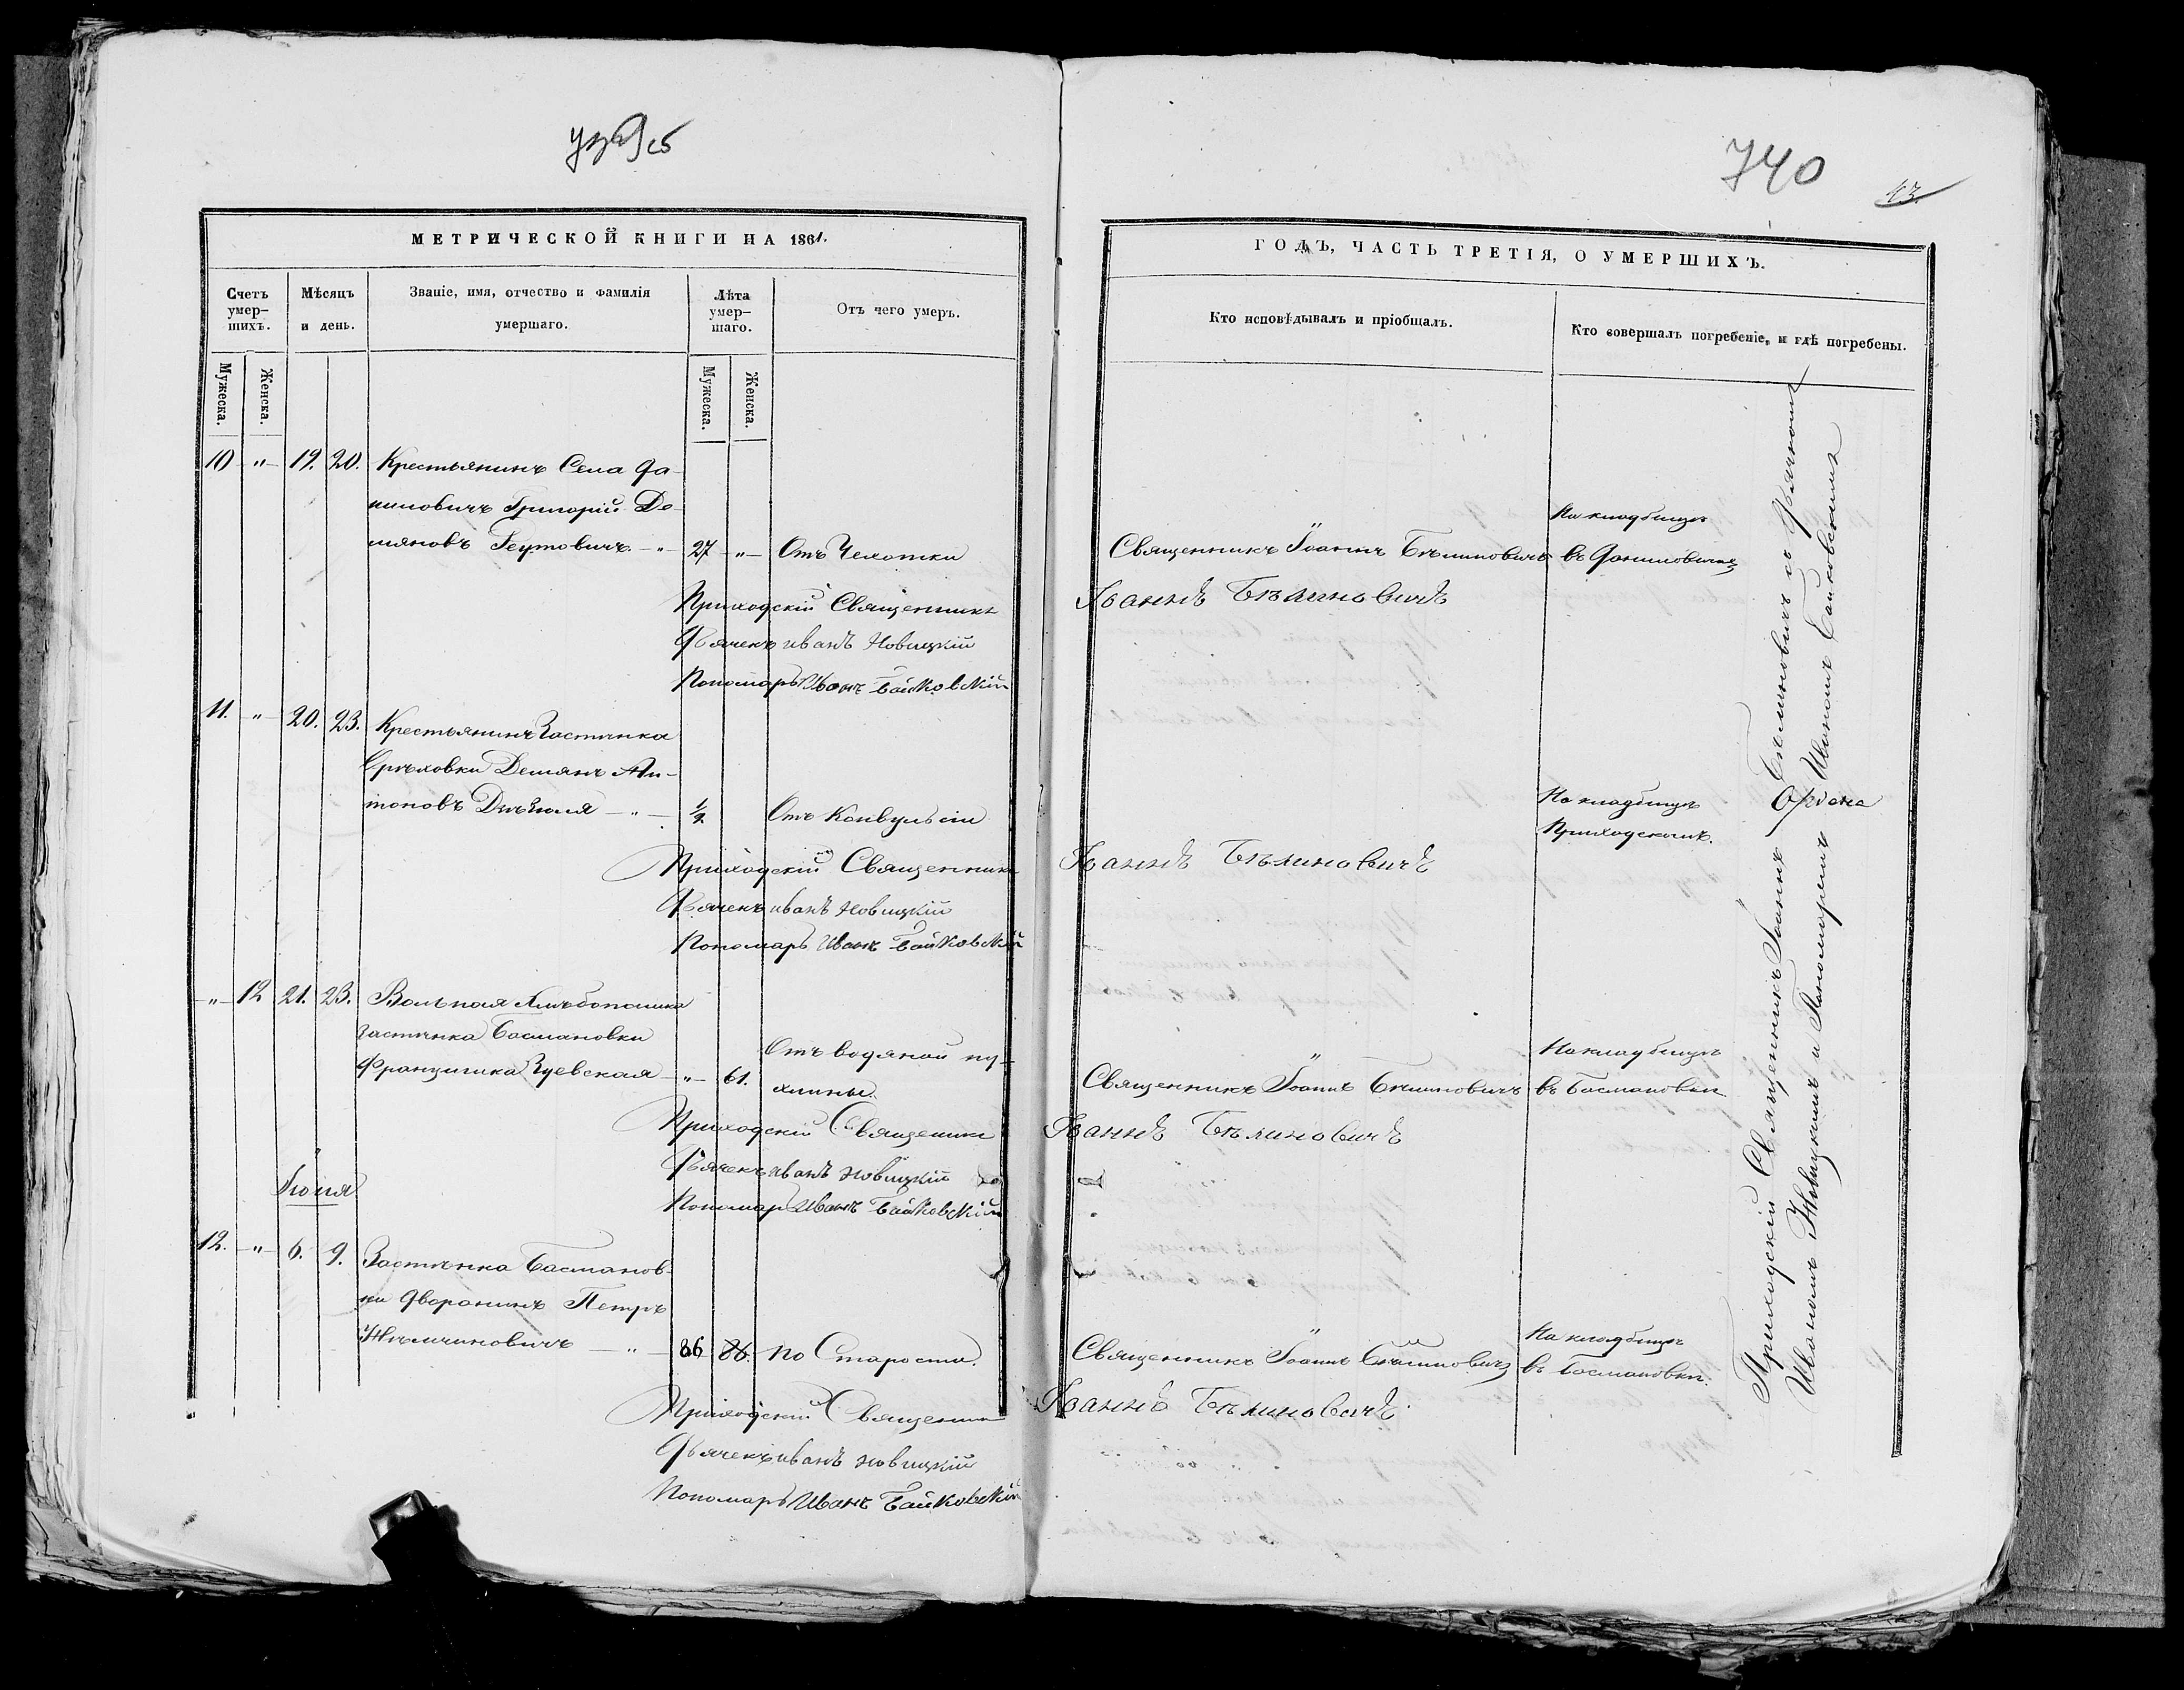 740
13.
МЕТРИЧЕСКОЙ КНИГИ НА 1861.
Счетъ умер-шихъ.
Мѣсяцъ и день.
Званіе, имя, отчество и фамилія умершаго.
Лѣта умер-шаго.
Отъ чего умеръ.
Мужеска.
Женска.
Мужеска.
Женска.
ГОДЪ, ЧАСТЬ ТРЕТІЯ, О УМЕРШИХЪ.
Кто исповѣдывалъ и пріобщалъ.
Кто совершалъ погребеніе, и гдѣ погребены.
10 -"- 19. 20. Крестьянинъ Села Да-
ниловичъ Григорій Де-
мяновъ Геутовичъ -"- 27 -"- Отъ Чахотки
Священникъ Іоаннъ Бѣлиновичъ
На кладбищѣ
въ Даниловичахъ
Приходскій Священникъ Іоаннъ Бѣлиновичъ
Дьячекъ Иванъ Новицкій
Пономарь Иванъ Байковскій
11. -"- 20. 23. Крестьянинъ Застѣнка
Орѣховки Демянъ Ан-
тоновъ -"- Отъ Конвульсіи
На кладбищѣ
Приходскомъ.
Приходскій Священникъ Іоаннъ Бѣлиновичъ
Дьячекъ Иванъ Новицкій
Пономарь Иванъ Байковскій
-"- 12 21. 23. Вольная Хлѣбопашка
Застѣнка Басмановки
Францишка -"- 61. Отъ водяной пу-
хлины.
Священникъ Іоаннъ Бѣлиновичъ
На кладбищѣ
въ Басмановки
Приходскій Священникъ Іоаннъ Бѣлиновичъ
Дьячекъ Иванъ Новицкій
Пономарь Иванъ Байковскій
12. -"- 6. 9. Застѣнка Басманов-
ки Дворянинъ Петръ
-"- 86 86. По Старости.
Священникъ Іоаннъ Бѣлиновичъ
На кладбищѣ
въ Басмановки.
Приходскій Священникъ Іоаннъ Бѣлиновичъ
Дьячекъ Иванъ Новицкій
Пономарь Иванъ Байковскій
Приходскій Священникъ Іоаннъ Бѣлиновичъ съ Дьячкомъ
Иваномъ Новицкимъ и Пономаремъ Иваномъ Байковскимъ